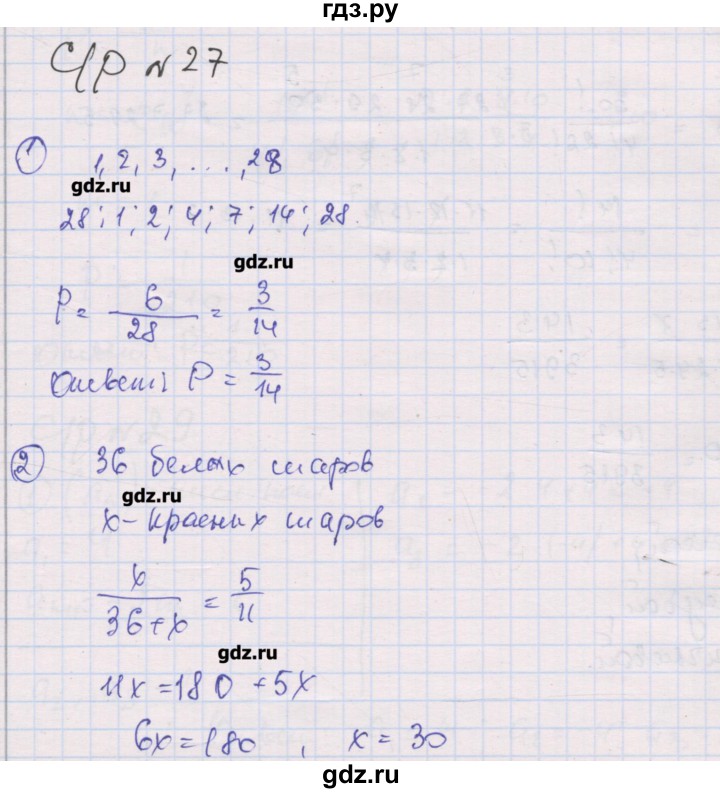 гдз.ру
С/р № 27
① 1, 2, 3, ..., 28
gdz.ru
28; 1; 2; 4; 7; 14; 28
gdz.ru
P = 6/28 = 3/14
Ответ: P = 3/14
② 36 белых шаров
gdz.ru
x - красных шаров
x/(36+x) = 5/11
gdz.ru
11x = 180 + 5x
6x = 180, x = 30
gdz.ru